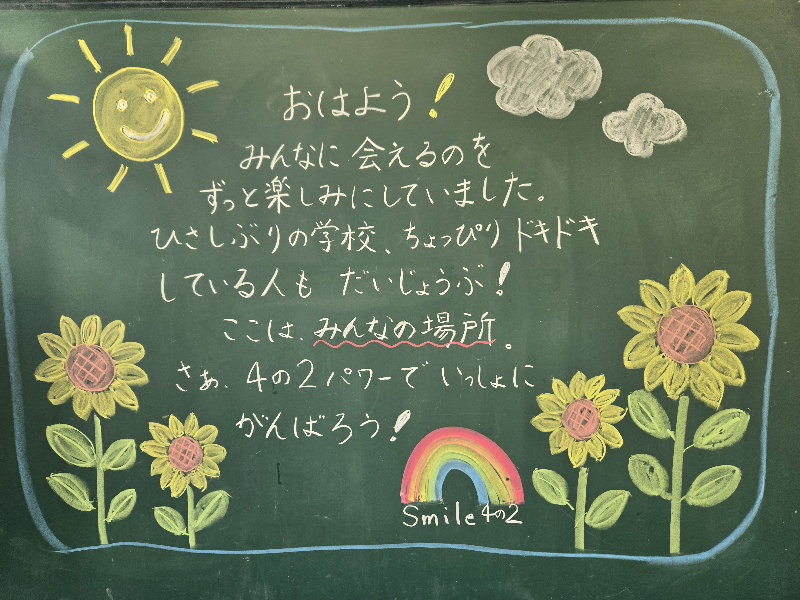 おはよう！
みんなに 会えるのを
ずっと楽しみにしていました。
ひさしぶりの学校、ちょっぴり ドキドキ
している人も だいじょうぶ！
ここは、みんなの場所。
さあ、4の2パワーで いっしょに
がんばろう！
Smile 4の2